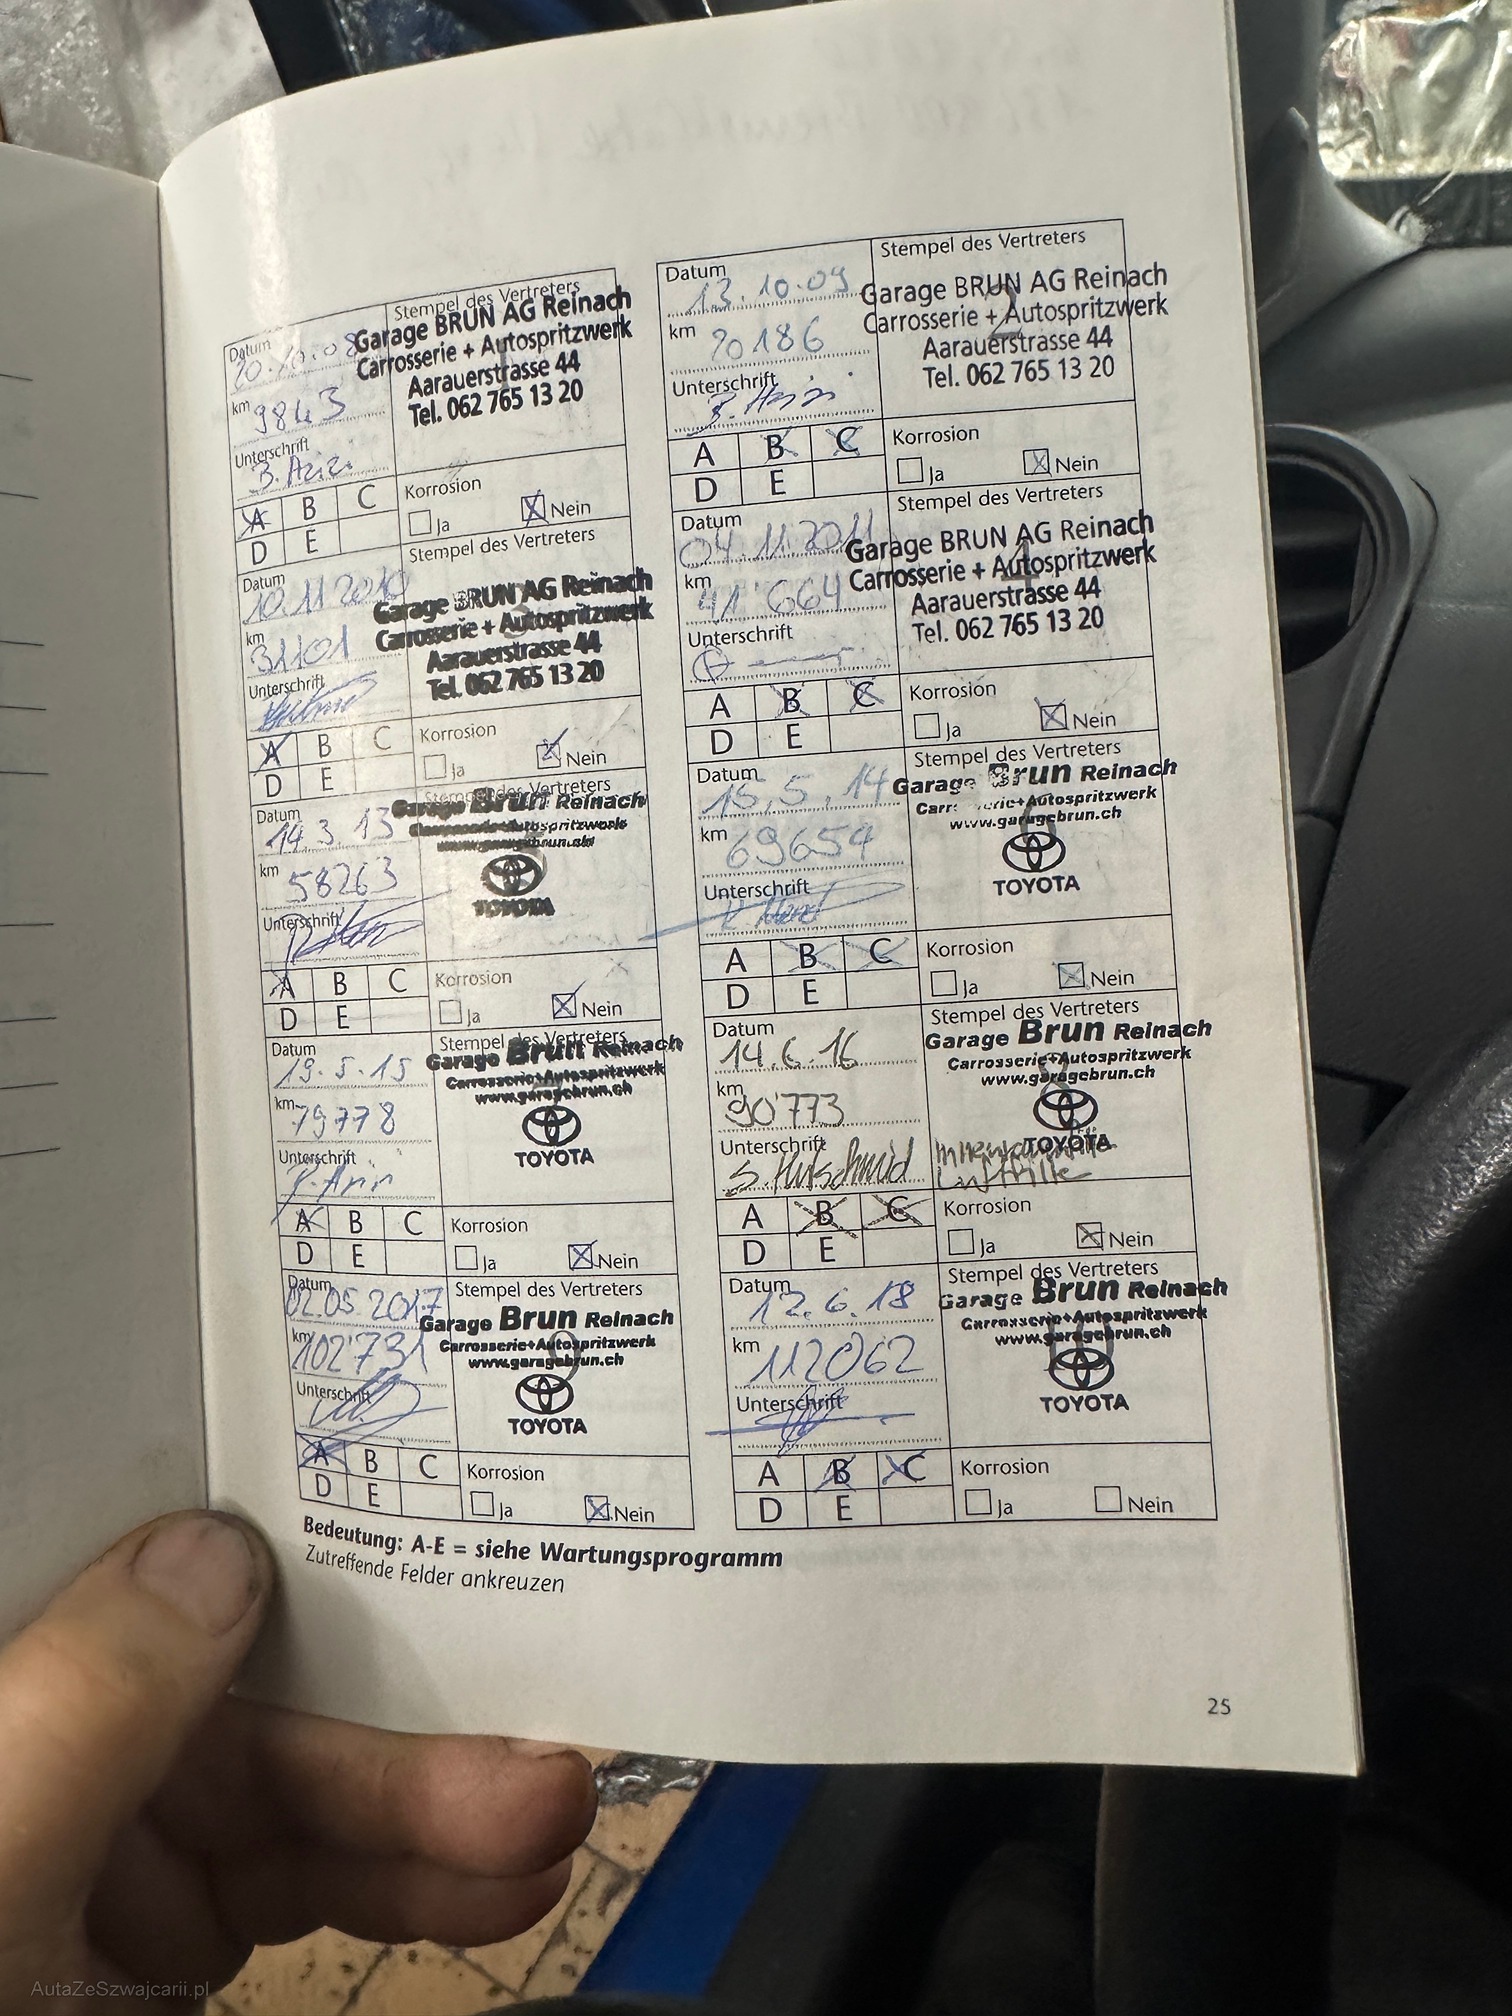 Datum
20.10.08
km
9843
Unterschrift
Stempel des Vertreters
Garage BRUN AG Reinach
Carrosserie + Autospritzwerk
Aarauerstrasse 44
Tel. 062 765 13 20
1
A B C
D E
Korrosion
Ja Nein
Datum
13.10.09
km
20186
Unterschrift
Stempel des Vertreters
Garage BRUN AG Reinach
Carrosserie + Autospritzwerk
Aarauerstrasse 44
Tel. 062 765 13 20
2
A B C
D E
Korrosion
Ja Nein
Datum
10.11.2010
km
31101
Unterschrift
Stempel des Vertreters
Garage BRUN AG Reinach
Carrosserie + Autospritzwerk
Aarauerstrasse 44
Tel. 062 765 13 20
A B C
D E
Korrosion
Ja Nein
Datum
04.11.2011
km
41'664
Unterschrift
Stempel des Vertreters
Garage BRUN AG Reinach
Carrosserie + Autospritzwerk
Aarauerstrasse 44
Tel. 062 765 13 20
4
A B C
D E
Korrosion
Ja Nein
Datum
14.3.13
km
58263
Unterschrift
Stempel des Vertreters
Garage Brun Reinach
Carrosserie+Autospritzwerk
www.garagebrun.ch
TOYOTA
A B C
D E
Korrosion
Ja Nein
Datum
15.5.14
km
69654
Unterschrift
Stempel des Vertreters
Garage Brun Reinach
Carrosserie+Autospritzwerk
www.garagebrun.ch
6
TOYOTA
A B C
D E
Korrosion
Ja Nein
Datum
19.5.15
km
79778
Unterschrift
Stempel des Vertreters
Garage Brun Reinach
Carrosserie+Autospritzwerk
www.garagebrun.ch
TOYOTA
A B C
D E
Korrosion
Ja Nein
Datum
14.6.16
km
90'773
Unterschrift
S. Hutschmid
Stempel des Vertreters
Garage Brun Reinach
Carrosserie+Autospritzwerk
www.garagebrun.ch
8
TOYOTA
Luftfilter
A B C
D E
Korrosion
Ja Nein
Datum
02.05.2017
km
102'731
Unterschrift
Stempel des Vertreters
Garage Brun Reinach
Carrosserie+Autospritzwerk
www.garagebrun.ch
9
TOYOTA
A B C
D E
Korrosion
Ja Nein
Datum
12.6.18
km
112062
Unterschrift
Stempel des Vertreters
Garage Brun Reinach
Carrosserie+Autospritzwerk
www.garagebrun.ch
10
TOYOTA
A B C
D E
Korrosion
Ja Nein
Bedeutung: A-E = siehe Wartungsprogramm
Zutreffende Felder ankreuzen
25
AutaZeSzwajcarii.pl